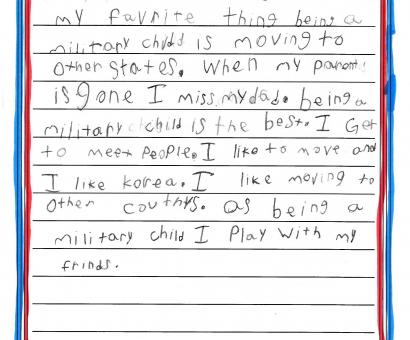 my favrite thing being a
military child is moving to
other states. when my parents
is gone I miss my dad. being a
military child is the best. I Get
to meet People. I like to move and
I like korea. I like moving to
other countys. as being a
military child I Play with my
frinds.